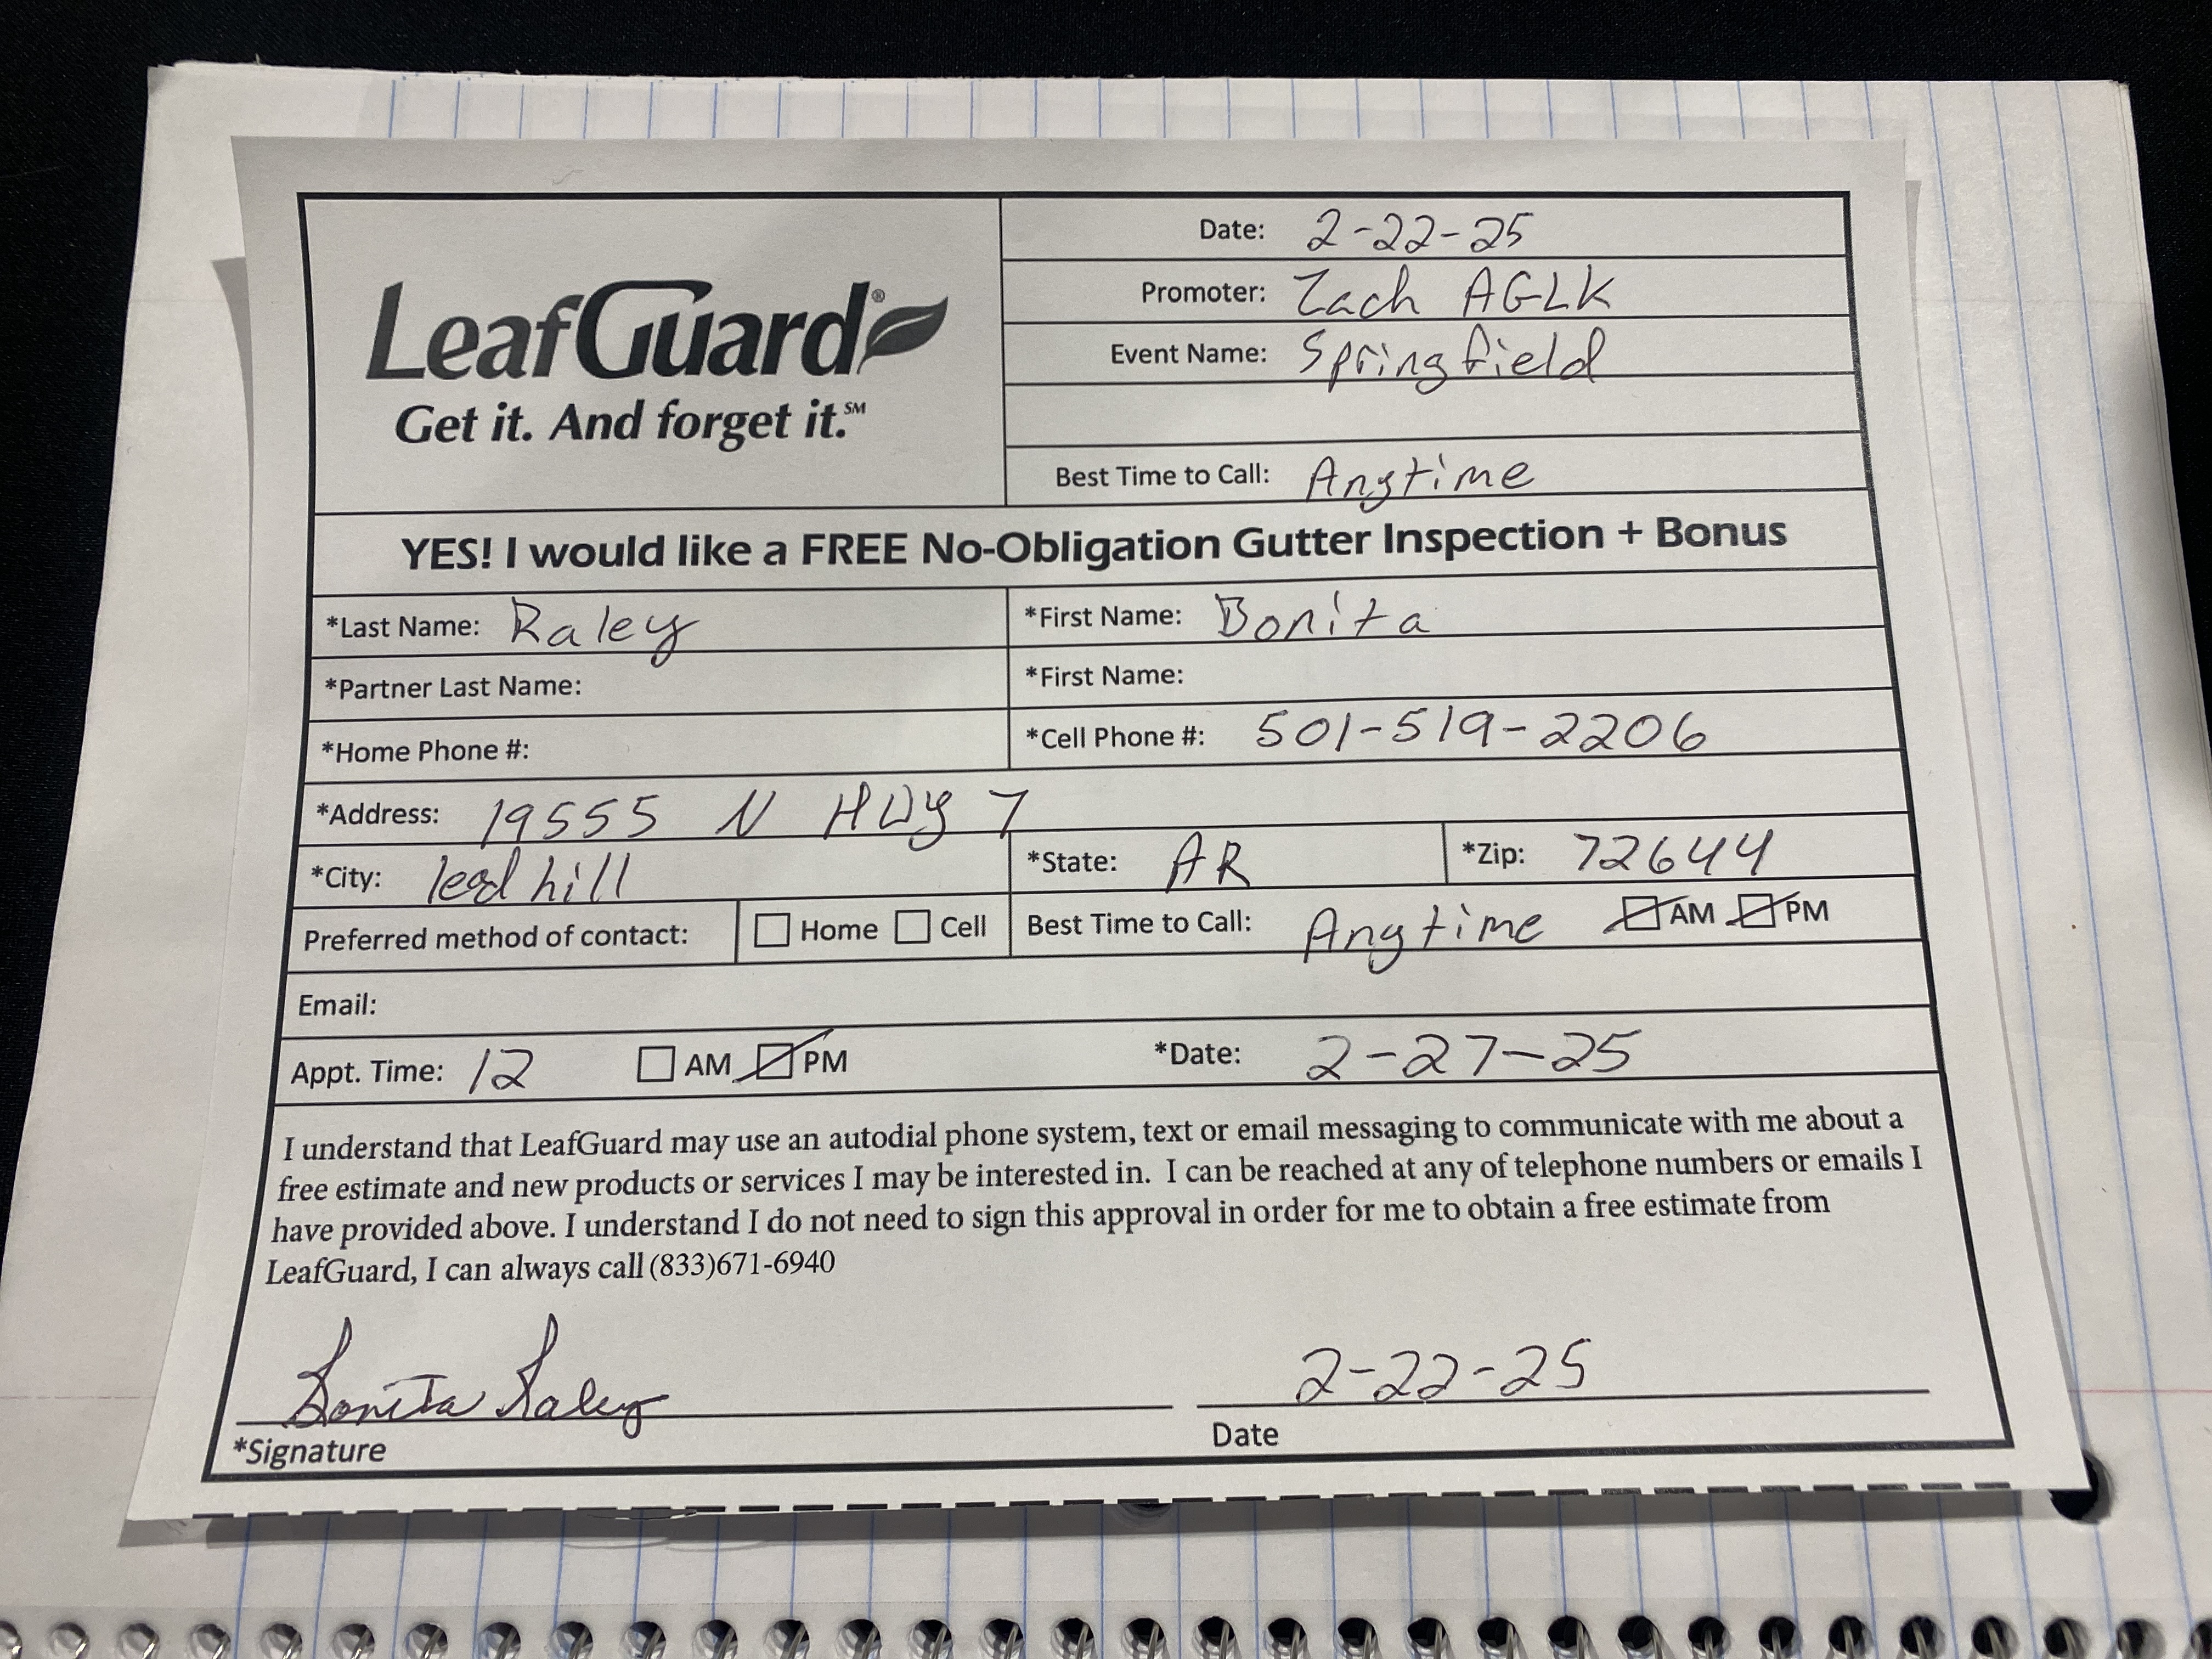 LeafGuard®
Get it. And forget it.℠
Date: 2-22-25
Promoter: Zach AGLK
Event Name: Springfield
Best Time to Call: Anytime
YES! I would like a FREE No-Obligation Gutter Inspection + Bonus
*Last Name: Raley *First Name: Bonita
*Partner Last Name: *First Name:
*Home Phone #: *Cell Phone #: 501-519-2206
*Address: 19555 N HWY 7
*City: lead hill *State: AR *Zip: 72644
Preferred method of contact: ☐ Home ☐ Cell Best Time to Call: Anytime ☑ AM ☑ PM
Email:
Appt. Time: 12 ☐ AM ☑ PM *Date: 2-27-25
I understand that LeafGuard may use an autodial phone system, text or email messaging to communicate with me about a
free estimate and new products or services I may be interested in. I can be reached at any of telephone numbers or emails I
have provided above. I understand I do not need to sign this approval in order for me to obtain a free estimate from
LeafGuard, I can always call (833)671-6940
Bonita Raley 2-22-25
*Signature Date